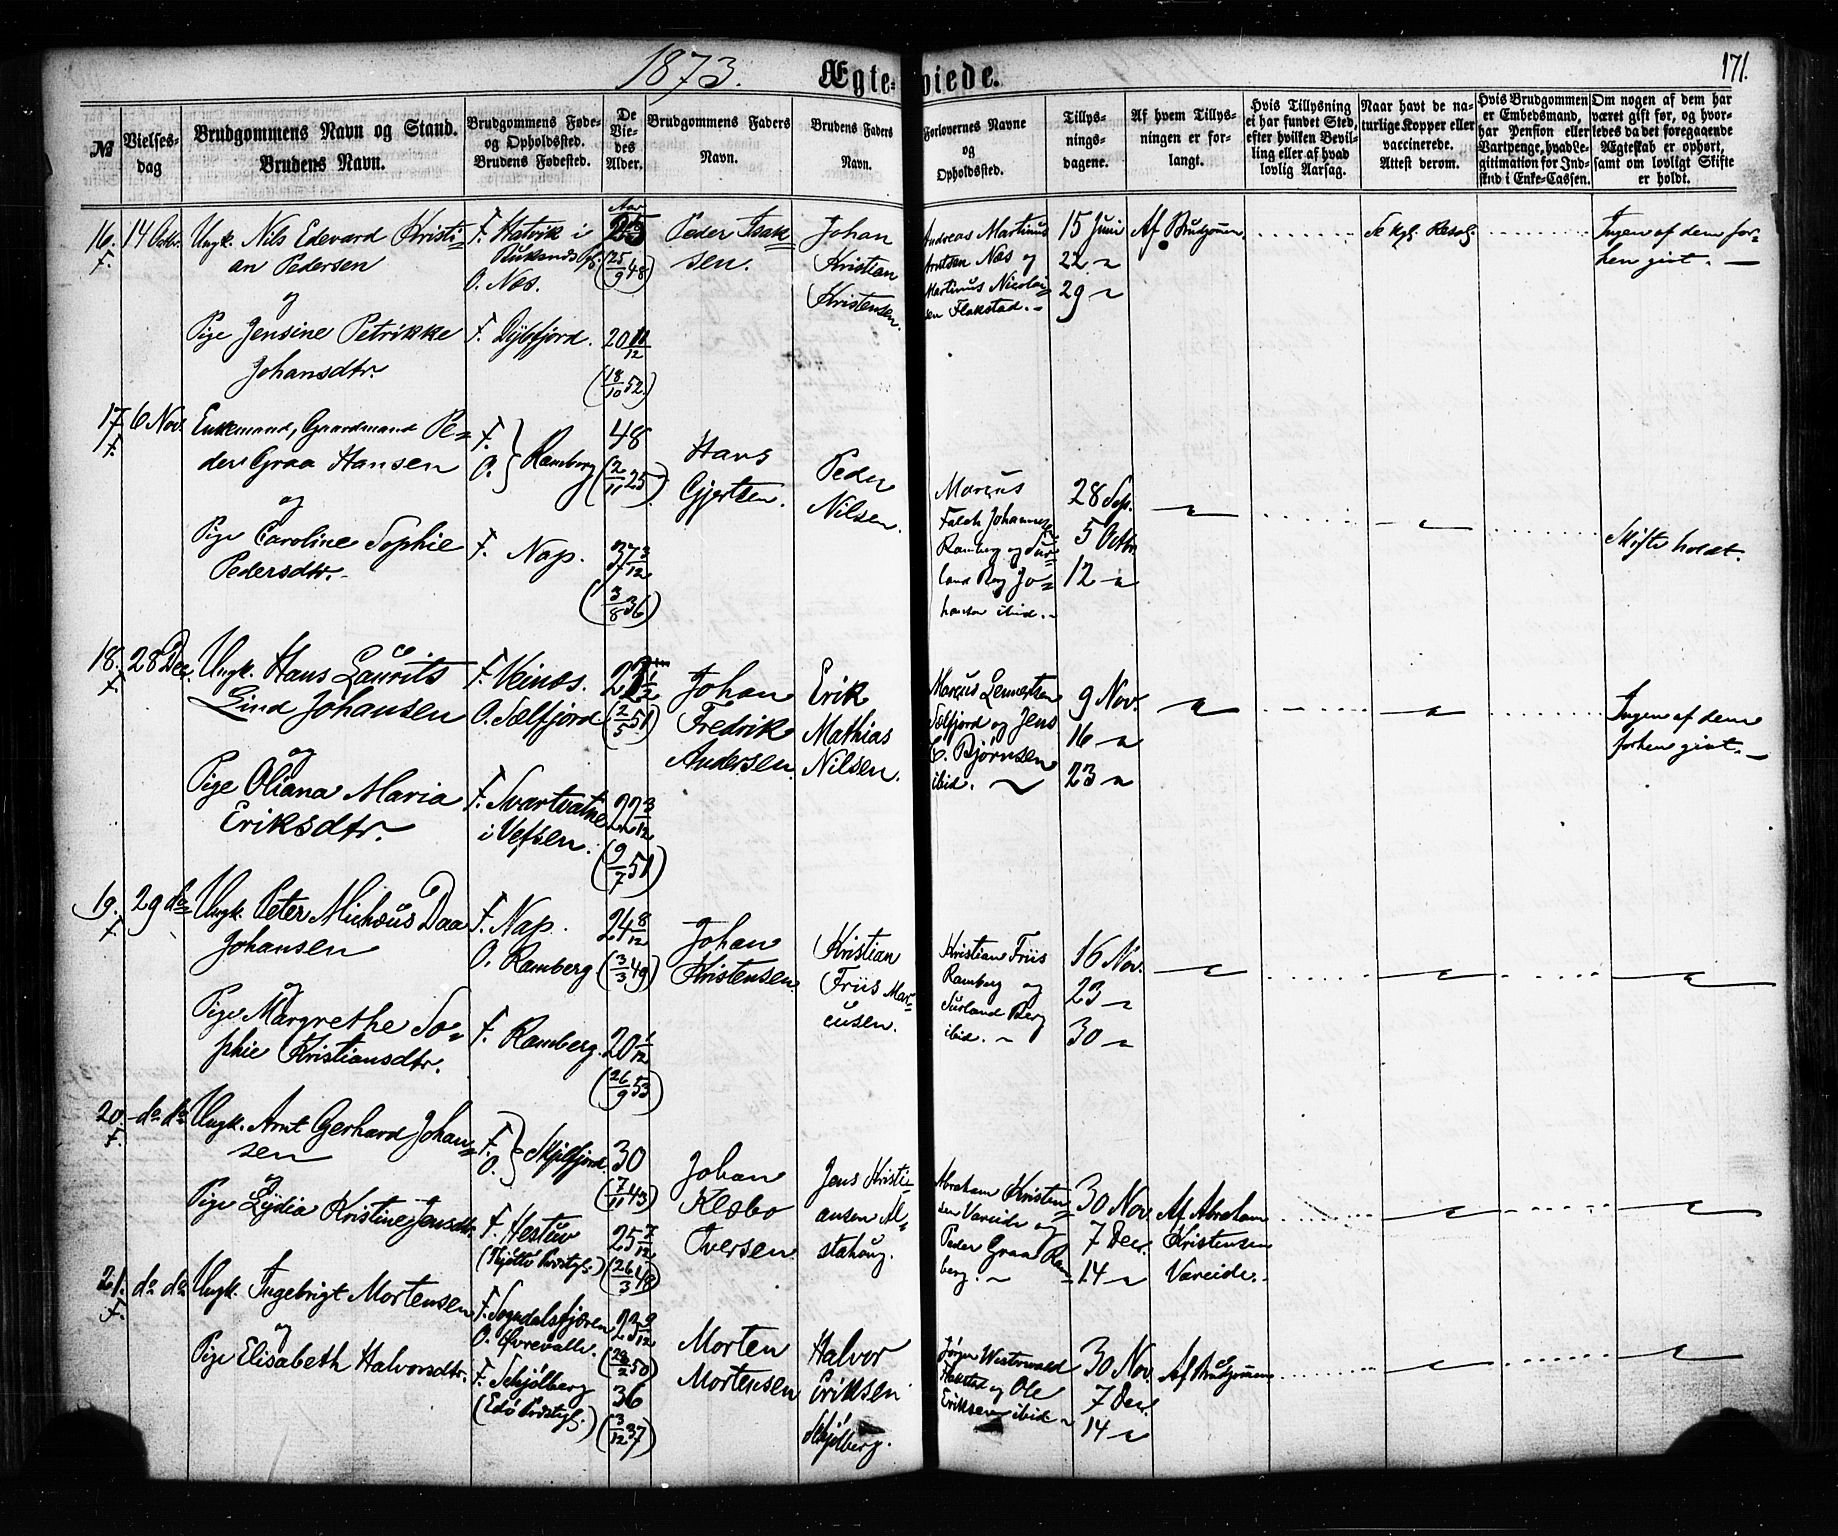 1873.
Ægte-
viede.
171.
№
Vielses-
dag
Brudgommens Navn og Stand.
Brudens Navn.
Brudgommens Føde-
og Opholdssted.
Brudens Fødested.
De
Vie-
des
Alder.
Brudgommens Faders
Navn.
Brudens Faders
Navn.
Forlovernes Navne
og
Opholdssted.
Tillys-
nings-
dagene.
Af hvem Tillys-
ningen er for-
langt.
Hvis Tillysning
ei har fundet Sted,
efter hvilken Bevil-
ling eller af hvad
lovlig Aarsag.
Naar havt de na-
turlige Kopper eller
vaccinerede.
Attest derom.
Hvis Brudgommen
er Embedsmand,
har Pension eller
Vartpenge, hvad Le-
gitimation for Ind-
skud i Enke-Cassen.
Om nogen af dem har
været gift før, og hvor-
ledes da det foregaaende
Ægteskab er ophørt,
samt om lovligt Skifte
er holdt.
16.
F.
14 Octbr.
Ungk. Nils Edevard Kristi-
an Pedersen
og
Pige Jensine Petrikke
Johansdtr.
F. Hatvik i
O. Næs.
F. Dybfjord.
Aar
25
(25/9 48)
20 11/12
(18/10 52.)
Peder Isak-
sen.
Johan
Kristian
Kristensen.
Andreas Martinus
Arntsen Næs og
Martinus Nicolai-
sen Flakstad. -
15 Juni
22 "
29 "
Af Brudgomm.
Se kgl. Resol.
Ingen af dem for-
hen givt. -
17.
F.
6 Nov.
Enkemand, Gaardmand Pe-
der Graa Hansen
og
Pige Caroline Sophie
Pedersdtr.
F.
O. } Ramberg
F. Nap.
48
(2/11 25)
37 3/12
(3/8 36)
Hans
Gjertsen.
Peder
Nilsen.
Marcus
Falch Johannes
Ramberg og Sur-
land Berg Jo-
hansen ibid. -
28 Sep.
5 Octbr
12 "
"
"
Skifte holdt.
18.
F.
28 Dec.
Ungk. Hans Laurits
Lind Johansen
og
Pige Oliana Maria
Eriksdtr.
F. Veinæs.
O. Sælfjord
F. Svartvatne
i Vefsen.
(2/5 51)
22 3/12
(9/7 51)
Johan
Fredrik
Andersen.
Erik
Mathias
Nilsen.
Marcus Lennertsen
Sælfjord og Jens
C. Bjørnsen
ibid. ~
9 Nov.
16 "
23 "
"
"
Ingen af dem
forhen givt. -
19.
F.
29 do
Ungk. Peter Michæus Daa
Johansen
og
Pige Margrethe So-
phie Kristiansdtr.
F. Nap.
O. Ramberg
F. Ramberg.
24 8/12
(3/3 49)
20 1/12
(26/9 53)
Johan
Kristensen.
Kristian
Friis Mar-
cusen.
Kristian Friis
Ramberg og
Surland Berg
ibid. ~
16 Nov.
23 "
30 "
"
"
"
20.
F.
- do do
Ungk. Arnt Gerhard Johan-
sen
og
Pige Lydia Kristine Jensdtr.
F.
O. } Skjelfjord
F. Hestun
(Tjøttø Præstgj.)
30
(7/11 43)
25 7/12
(26/3 48)
Johan
Klæbo
Iversen
Jens Kristi-
ansen Al-
stahoug.
Abraham Kristen-
sen Vareide og
Peder Graa Ram-
berg. ~
30 Nov
7 Dec.
14 "
Af Abraham
Kristensen
Vareide. -
"
"
21.
F.
do do
Ungk. Ingebrigt Mortensen
og
Pige Elisabeth Halvorsdtr.
F. Sogndalsfjæren
F. Skjølberg
(Edø Præstgj.)
36
(3/12 37)
Morten
Mortensen
Halvor
Eriksen
Skjølberg.
Jørgen Westerwald
Flakstad og Ole
Eriksen ibid ~
30 Nov
7 Dec.
14 "
Af Brudgommen
"
"